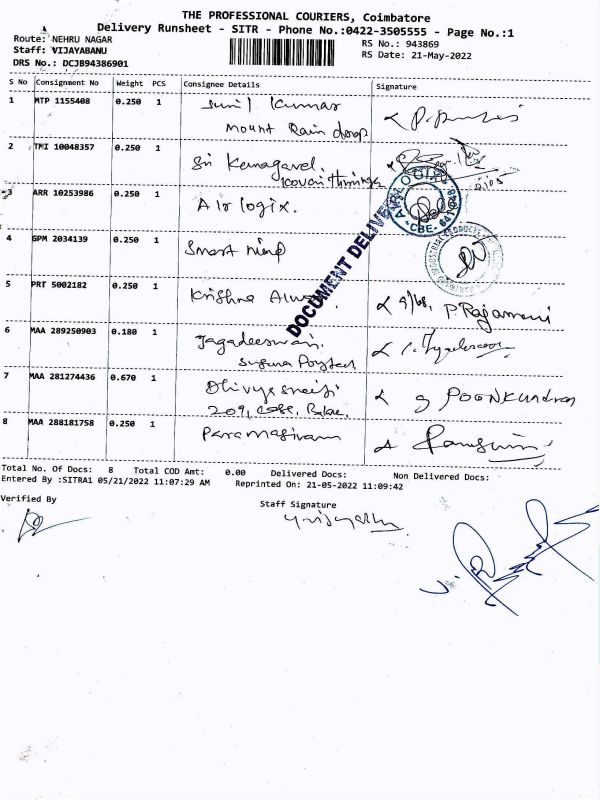 THE PROFESSIONAL COURIERS, Coimbatore
Delivery Runsheet - SITR - Phone No.:0422-3505555 - Page No.:1
Route: NEHRU NAGAR
RS No.: 943869
Staff: VIJAYABANU
RS Date: 21-May-2022
DRS No.: DCJB94386901
S No Consignment No Weight PCS Consignee Details Signature
1 MTP 1155408 0.250 1 Sunil Kumar
Mount Rain drop
2 TMI 10048357 0.250 1 Sri
3 ARR 10253986 0.250 1 Air logix.
4 GPM 2034139 0.250 1 Smart
5 PRT 5002182 0.250 1 Krishna P. Rajamani
6 MAA 289250903 0.180 1 Jagadeeswari
7 MAA 281274436 0.670 1 POONKUNDRAN
209,
8 MAA 288181758 0.250 1 Paramasivam
DOCUMENT DELIVER
AIRLOGI
CBE- 641
Total No. Of Docs: 8 Total COD Amt: 0.00 Delivered Docs: Non Delivered Docs:
Entered By :SITRA1 05/21/2022 11:07:29 AM Reprinted On: 21-05-2022 11:09:42
Verified By
Staff Signature